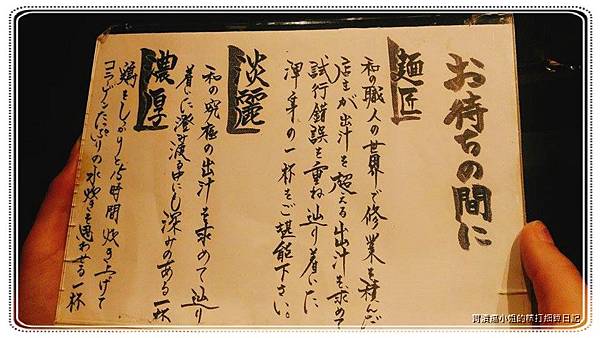 お待ちの間に
麺匠
和の職人の世界で修業を積んだ
店主が出汁を超える出汁を求めて
試行錯誤を重ね辿り着いた
渾身の一杯をご堪能下さい。
淡麗
和の究極の出汁を求めて辿り
着いた澄み渡る中にも深みのある一杯
濃厚
鶏をしっかりと15時間炊き上げて
コラーゲンたっぷりの水炊きを思わせる一杯